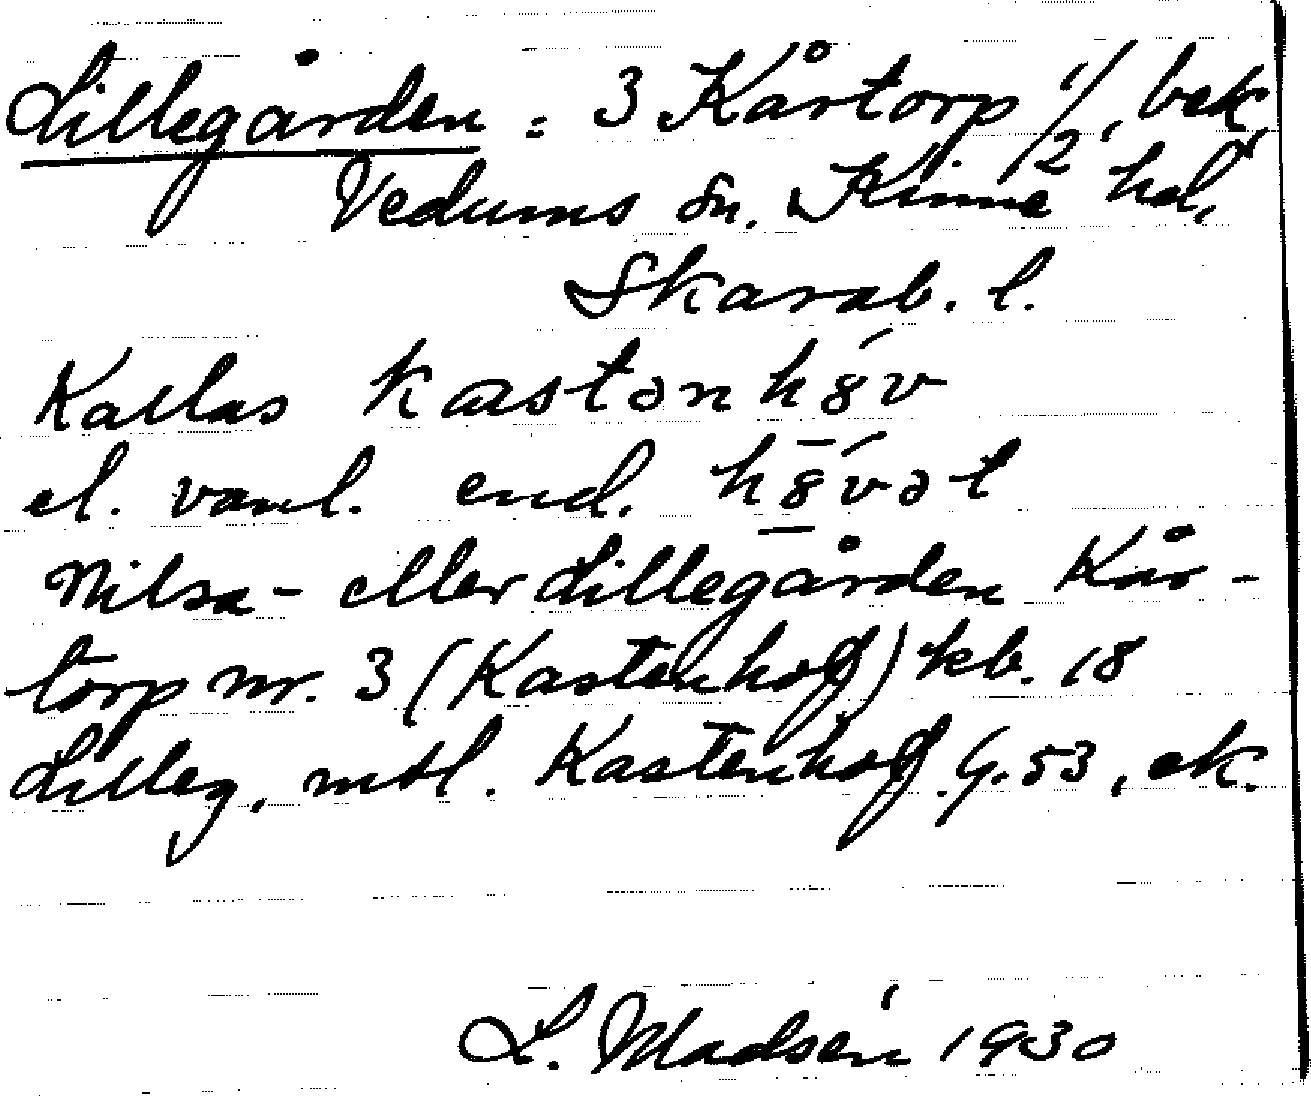 Lillegården = 3 Kårtorp 1/2, bek.
Vedums sn. Kinne hd,
Skarab. l.
Kallas kastənhȣ́v
el. vanl. end. hȣ̄́vət
Nilsa- eller Lillegården Kår-
torp nr. 3 (Kastenhof) kb. 18
Lilleg, mtl. Kastenhof G. 53, ek.
L. Madsén 1930